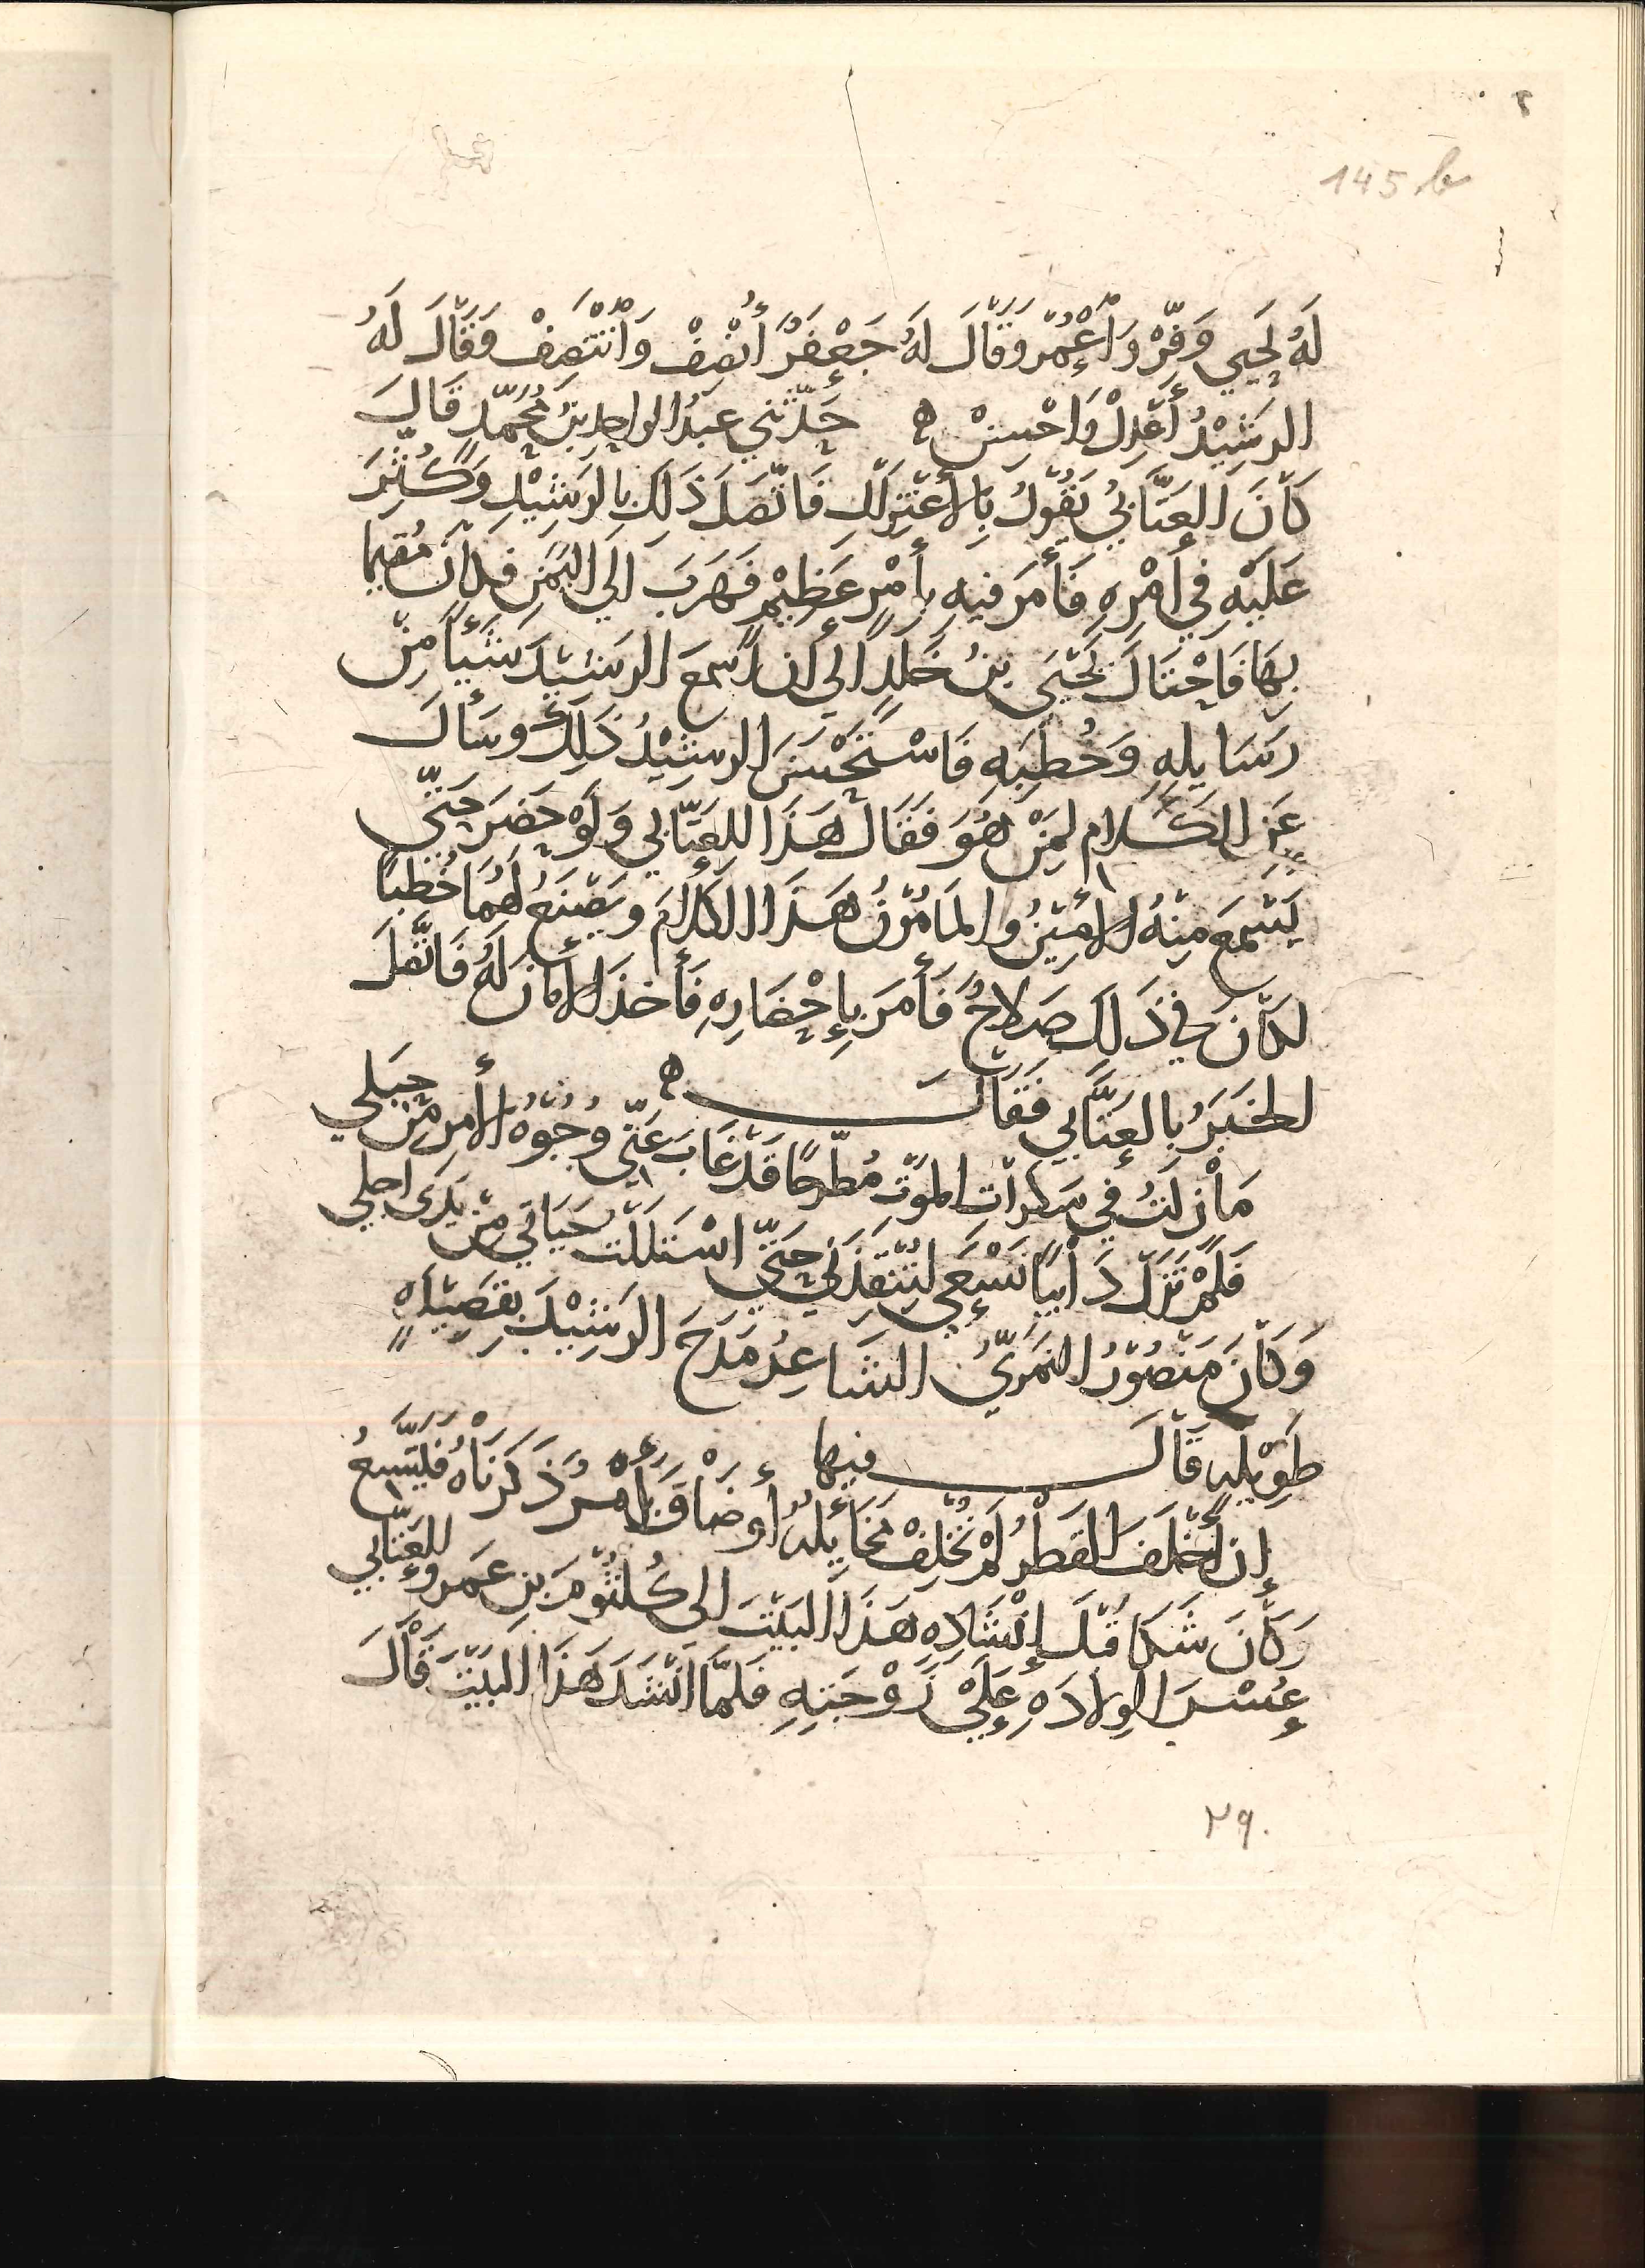 145 b
لَهُ يَحيي وَفِّرْ وَاعْمُرْ وَقَالَ لَهُ جَعْفَرٌ أَنْصِفْ وَانْتَصِفْ وَقَالَ لَهُ
الرَشِيْدُ أَعْدِلْ وَاحْسِنْ ه حَدَّثَنِي عَبْدُ الواحِدِ بنُ مُحَمَّدٍ قَالَ
كَانَ العَتَّابِيُّ يَقُوْلُ بِالأعْتِزَالِ فَاتَّصَلَ ذَلِكَ بِالرَشِيْدِ وَكُثِّرَ
عَلَيْهِ فِي أَمْرِهِ فَأَمَرَ فِيهِ بِأَمْرٍ عَظِيْمٍ فَهَرَبَ الَي اليَمَنِ فكَانَ مُقِيمًا
بِهَا فَاحْتَالَ يَحْيَى بنُ خَالِدٍ الَي أَن اسْمَعَ الرَشِيْدَ شَيْأً مِنْ
رَسَايِلِهِ وَخُطَبِهِ فَاسْتَحْسَنَ الرَشِيْدُ ذَلِكَ وسَأَلَ
عَنِ الكَلَامِ لِمَنْ هُوَ فَقَالَ هَذَا لِلعَتَّابِي وَلَوْ حَضَرَ حَتَّى
يَسْمَعَ مِنْهُ الأَمِيْنُ والمَأْمُوْنُ هَذَا الكَلَامَ وَيَصْنَعُ لَهُمَا خُطَبًا
لكَانَ في ذَلِكَ صَلَاحٌ فَأَمَرَ بِإِحْضَارِهِ فَأَخذَ الأَمَانَ لَهُ فَاتَّصَلَ
الخَبَرُ بِالعَتَّابِي فَقَالَ ه
مَا زِلتُ فِي سَكَرَاتِ المَوْتِ مُطَّرَحًا قَدْ غَابَ عَنِّي وُجُوْهُ الأَمْرِ مِنْ حِيَلِي
فَلَمْ تَزَلْ دَايِبًا تَسْعَى لِتُنْقِذَنِي حَتَّى اسْتَلَلْتَ حَيَاتِي مِنْ يَدَى اجلِي
وَكَانَ مَنْصُوْرُ النَمَرِيُّ الشَاعِرُ مَدَحَ الرَشِيْدَ بِقَصِيْدَهٍ
طَوِيْلَهٍ قَالَ فِيهَا
إِن أَخْلَفَ القَطْرُ لَمْ تُخْلِفْ مَخَايِلُهُ أَو ضَاقَ أَمْرٌ ذَكَرْنَاهُ فَيَتَّسِعُ
وَكَانَ شَكَا قَبْلَ إِنْشَادِهِ هَذَا البَيْتَ الى كُلثُوْمَ بنِ عَمرو العَتَّابِي
عُسْرَ الوِلَادَهِ عَلَىْ زَوْجَتِهِ فَلَمَّا انْشَدَ هَذَا البَيْتَ قَالَ
٢٩٠